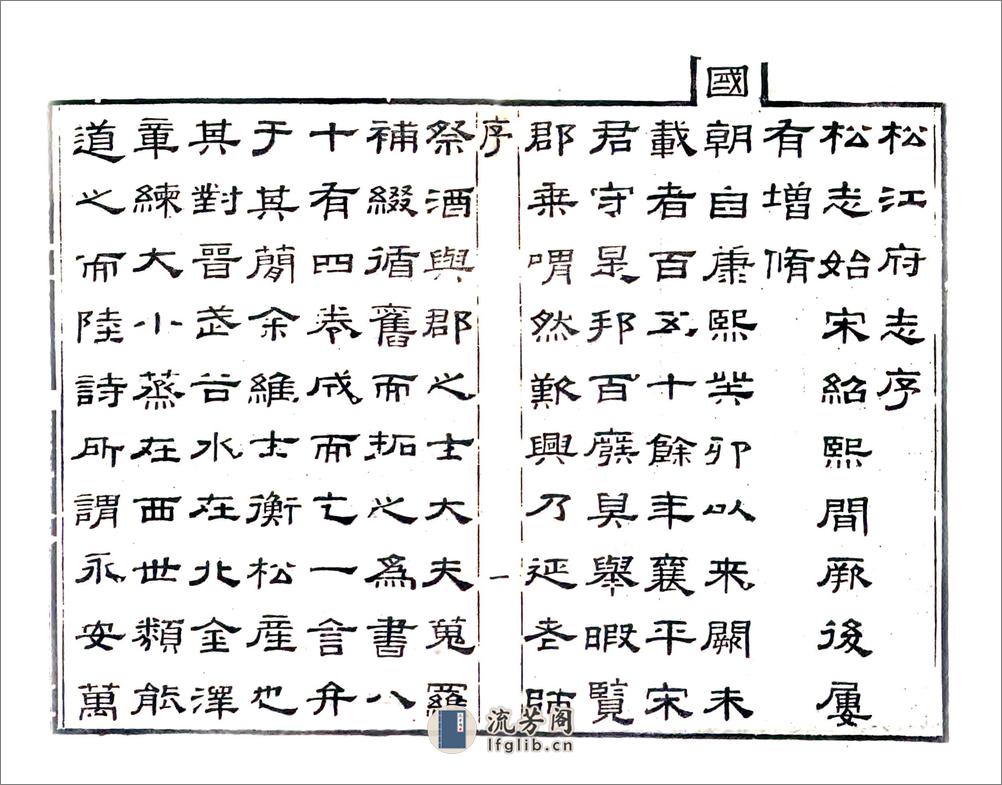 松江府志序
松志始宋紹熙間厥後屢
有增脩
國朝自康熙癸卯以来闕未
載者百五十餘年襄平宋
君守是邦百廢具舉暇覽
郡乘喟然歎興乃延老師
序 一
祭酒與郡之士大夫蒐羅
補綴循舊而拓之爲書八
十有四卷成而亡一言弁
于其簡余維士衡松產也
其對晉武谷水在北金澤
章練大小蒸在西世類能
道之而陸詩所謂永安萬
流芳阁
lfglib.cn